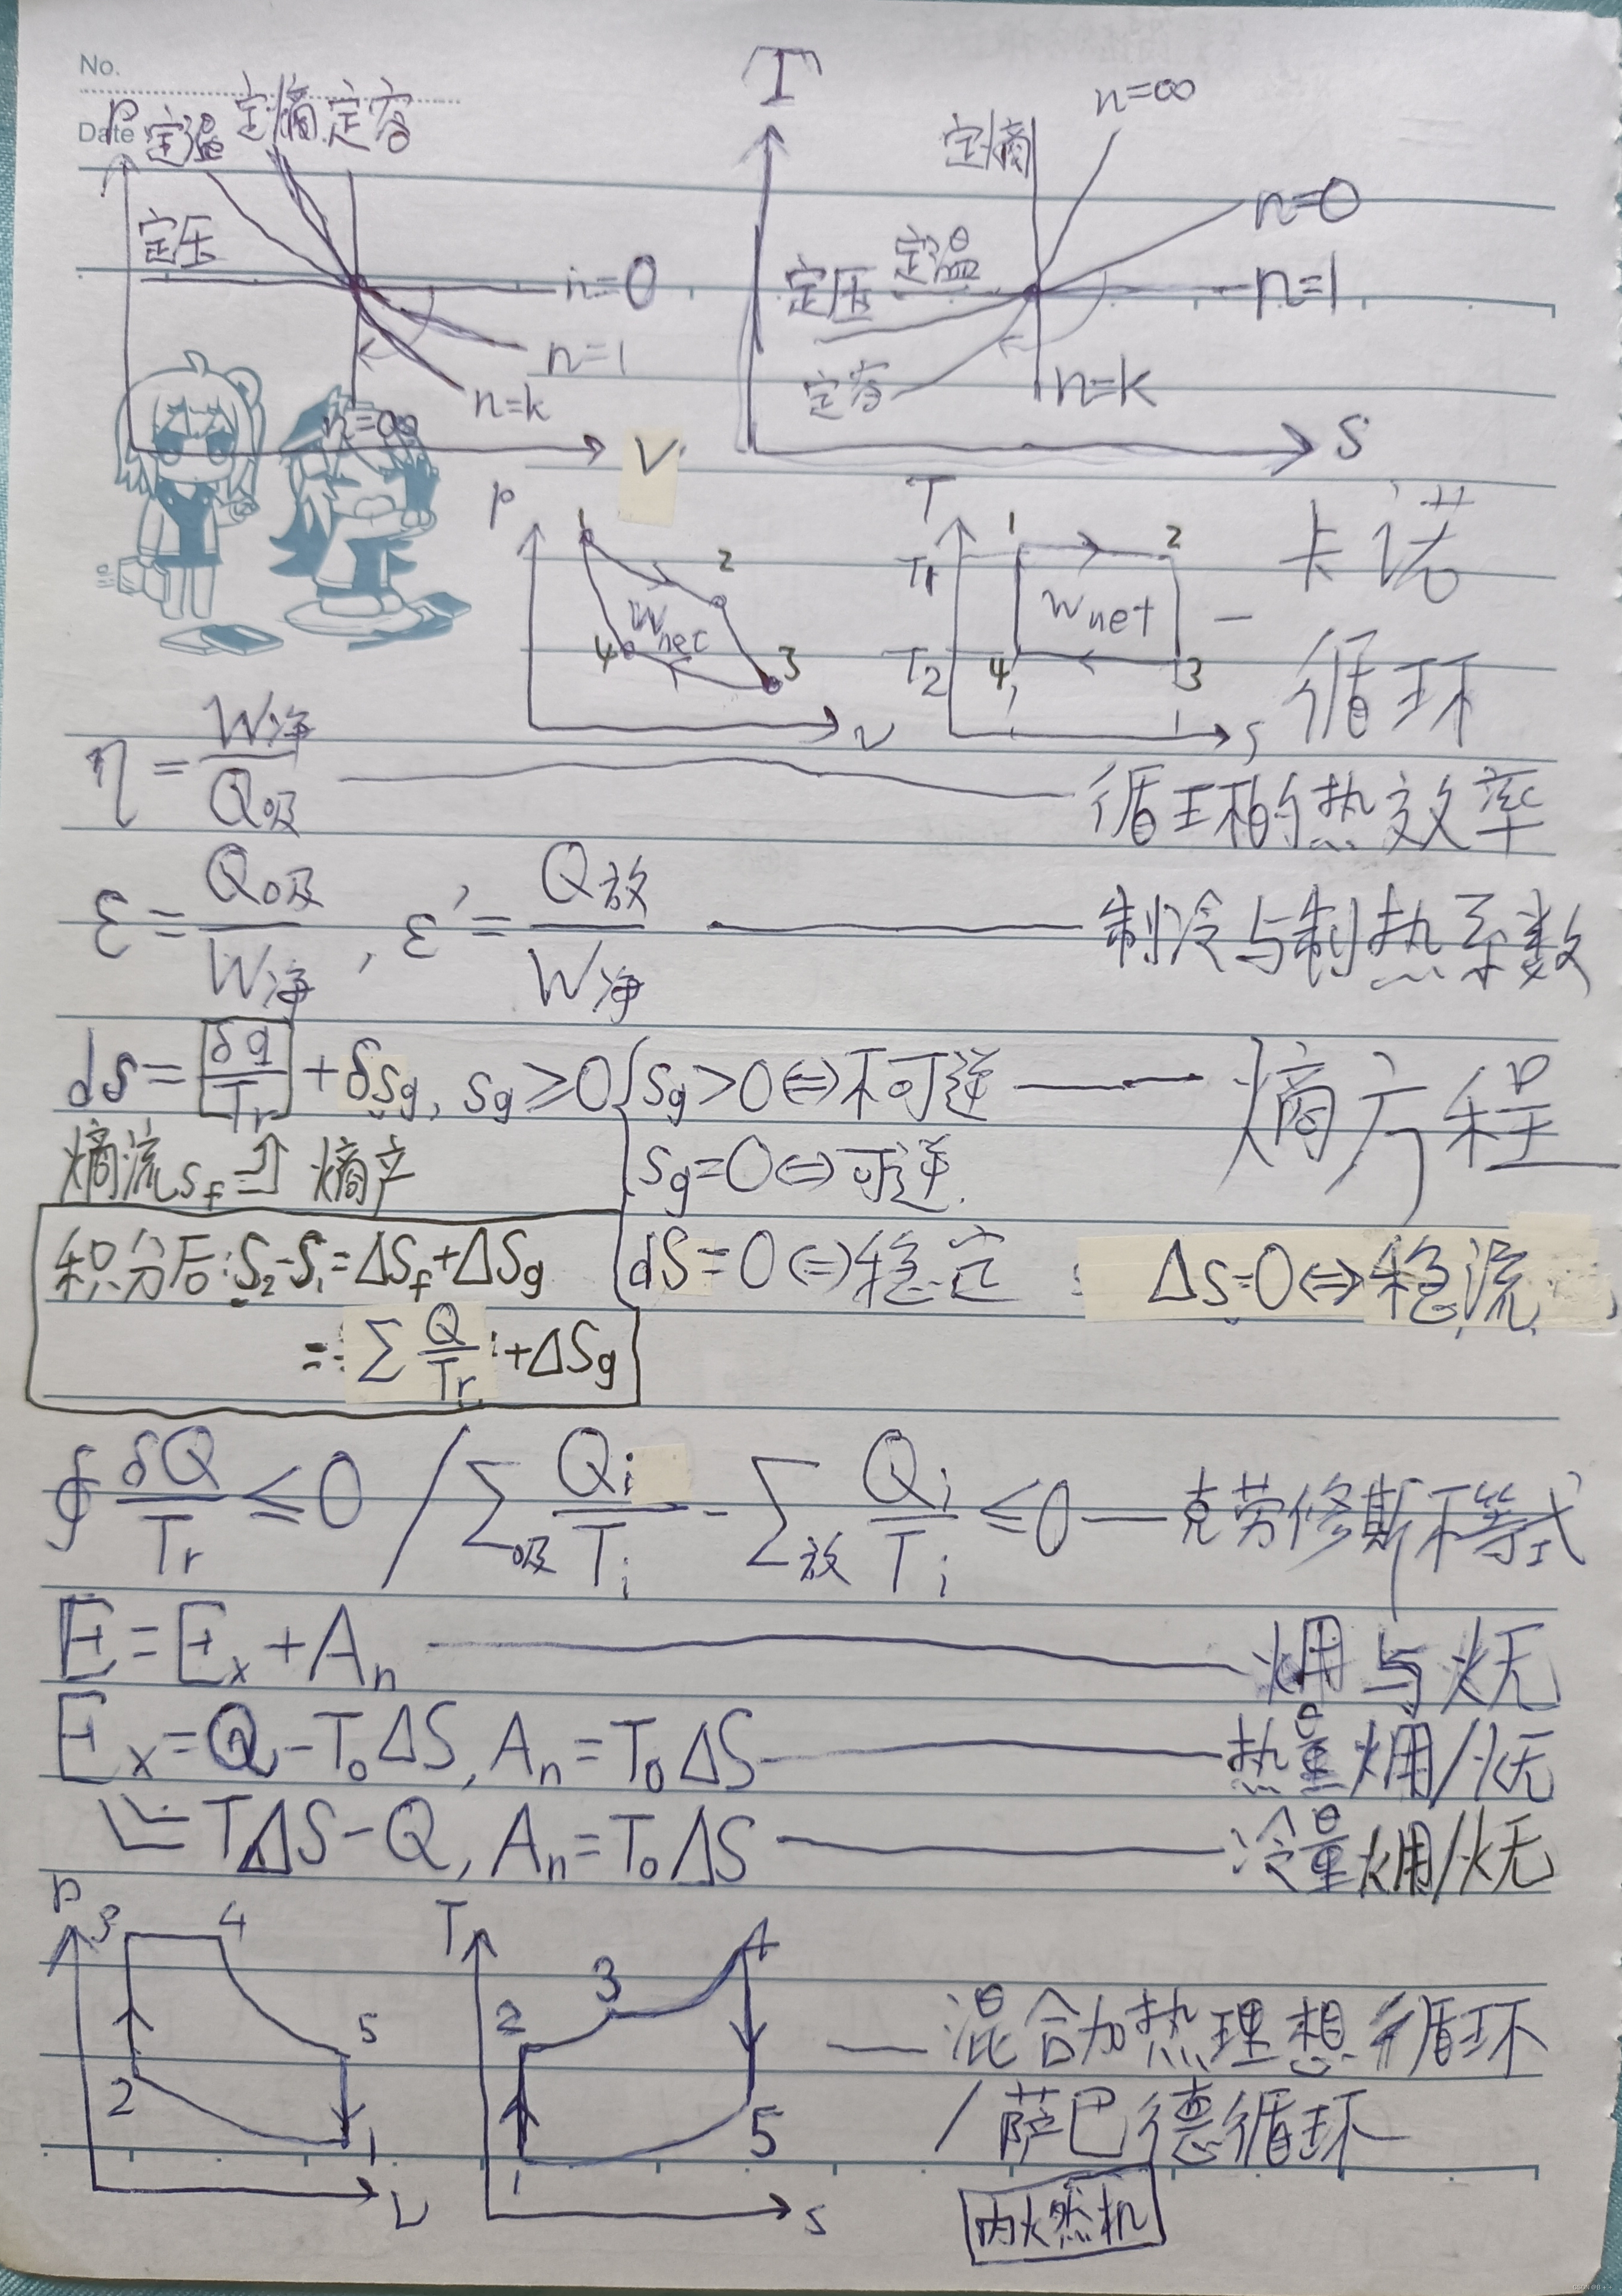 No.
Date
P 定温 定熵 定容
定压
n=0
n=1
n=k
n=∞
V
T
定熵 n=∞
n=0
定压 定温 n=1
定容 n=k
S
P 1 2 3 4 Wnet v
T T1 T2 1 2 3 4 Wnet s
卡诺循环
η=W净/Q吸 —— 循环的热效率
ε=Q吸/W净, ε'=Q放/W净 —— 制冷与制热系数
ds=δq/Tr+δsg, sg≥0 { sg>0⇔不可逆 —— 熵方程
熵流sf 熵产 sg=0⇔可逆
积分后:S2-S1=ΔSf+ΔSg dS=0⇔稳定 ΔS=0⇔稳流
=∑Q/Tr+ΔSg
∮δQ/Tr≤0 / ∑吸Qi/Ti-∑放Qi/Ti≤0 — 克劳修斯不等式
E=Ex+An —— 㶲与炁
Ex=Q-T0ΔS, An=T0ΔS —— 热量㶲/炁
=TΔS-Q, An=T0ΔS —— 冷量㶲/炁
P 3 4 5 2 1 v
T 2 3 4 5 1 s
— 混合加热理想循环
/萨巴德循环
内燃机